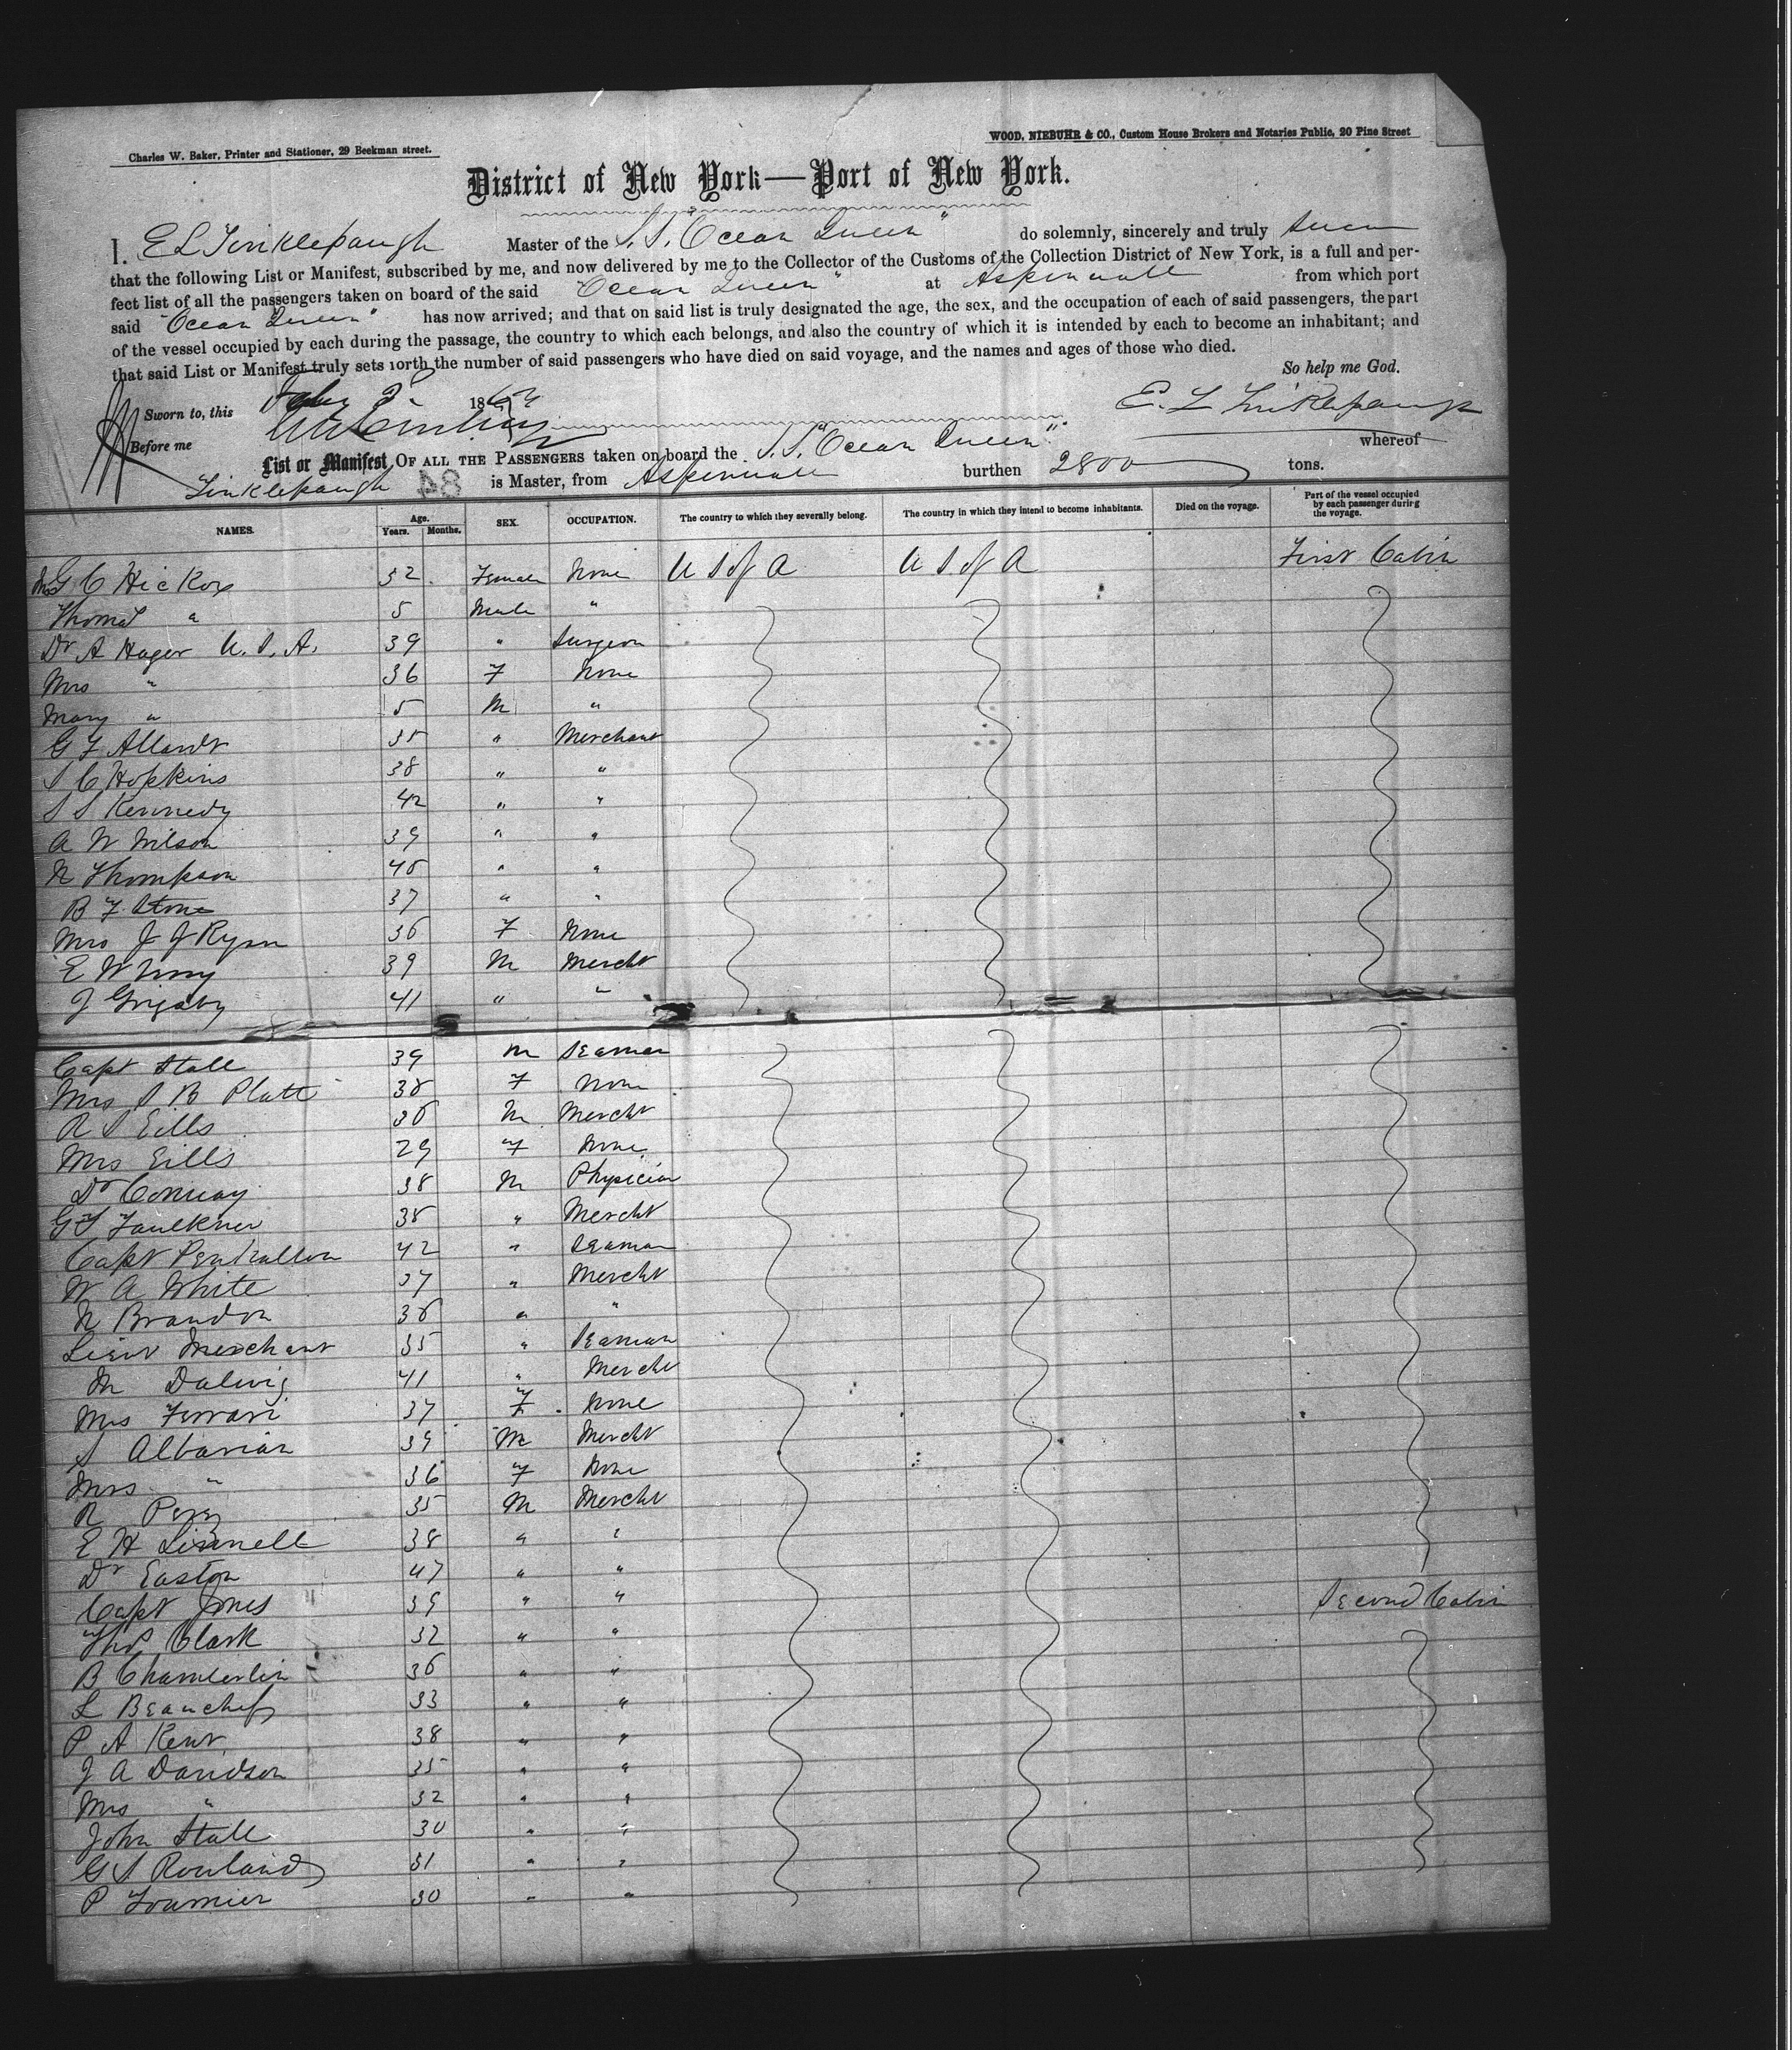 WOOD, NIEBUHR & CO., Custom House Brokers and Notaries Public, 20 Pine Street
Charles W. Baker, Printer and Stationer, 29 Beekman street.
District of New York—Port of New York.
I, E L Tinklepaugh Master of the S. S. "Ocean Queen" do solemnly, sincerely and truly swear
that the following List or Manifest, subscribed by me, and now delivered by me to the Collector of the Customs of the Collection District of New York, is a full and per-
fect list of all the passengers taken on board of the said "Ocean Queen" at Aspinwall from which port
said "Ocean Queen" has now arrived; and that on said list is truly designated the age, the sex, and the occupation of each of said passengers, the part
of the vessel occupied by each during the passage, the country to which each belongs, and also the country of which it is intended by each to become an inhabitant; and
that said List or Manifest truly sets forth the number of said passengers who have died on said voyage, and the names and ages of those who died.
So help me God.
Sworn to, this 186
E. L Tinklepaugh
Before me
List or Manifest OF ALL THE PASSENGERS taken on board the S. S. "Ocean Queen" whereof
Tinklepaugh 84 is Master, from Aspinwall burthen 2800 tons.
NAMES. Age. Years. Months. SEX. OCCUPATION. The country to which they severally belong. The country in which they intend to become inhabitants. Died on the voyage. Part of the vessel occupied by each passenger during the voyage.
Mrs G C Hickox 32 Female None U S of A U S of A First Cabin
Thomas " 5 Male "
Dr A Hager U. S. A. 39 " Surgeon
Mrs " 36 F None
Mary " 5 M "
G F Allardt 35 " Merchant
S C Hopkins 38 " "
S S Kennedy 42 " "
A W Wilson 39 " "
N Thompson 45 " "
B F Stone 37 " "
Mrs J J Ryan 36 F None
E W 39 M Mercht
J Grigsby 41 " "
Capt Stall 39 M Seaman
Mrs S B Platt 38 F None
R S Eills 36 M Mercht
Mrs Eills 29 F None
Dr Conway 38 M Physician
G F Faulkner 38 " Mercht
Capt Penhallow 42 " Seaman
W A White 37 " Mercht
N Brandon 36 " "
Lieut Merchant 35 " Seaman
M 41 " Mercht
Mrs Ferrari 37 F None
S Albanian 39 M Mercht
Mrs " 36 F None
R Perez 35 M Mercht
E H Linnell 38 " "
Dr Easton 47 " "
Capt Jones 39 " " Second Cabin
Thos Clark 32 " "
B Chamberlin 36 " "
L 33 " "
P A Kent 38 " "
J A Davidson 35 " "
Mrs " 32 " "
John Stall 30 " "
G S Rowland 31 " "
P Fournier 30 " "